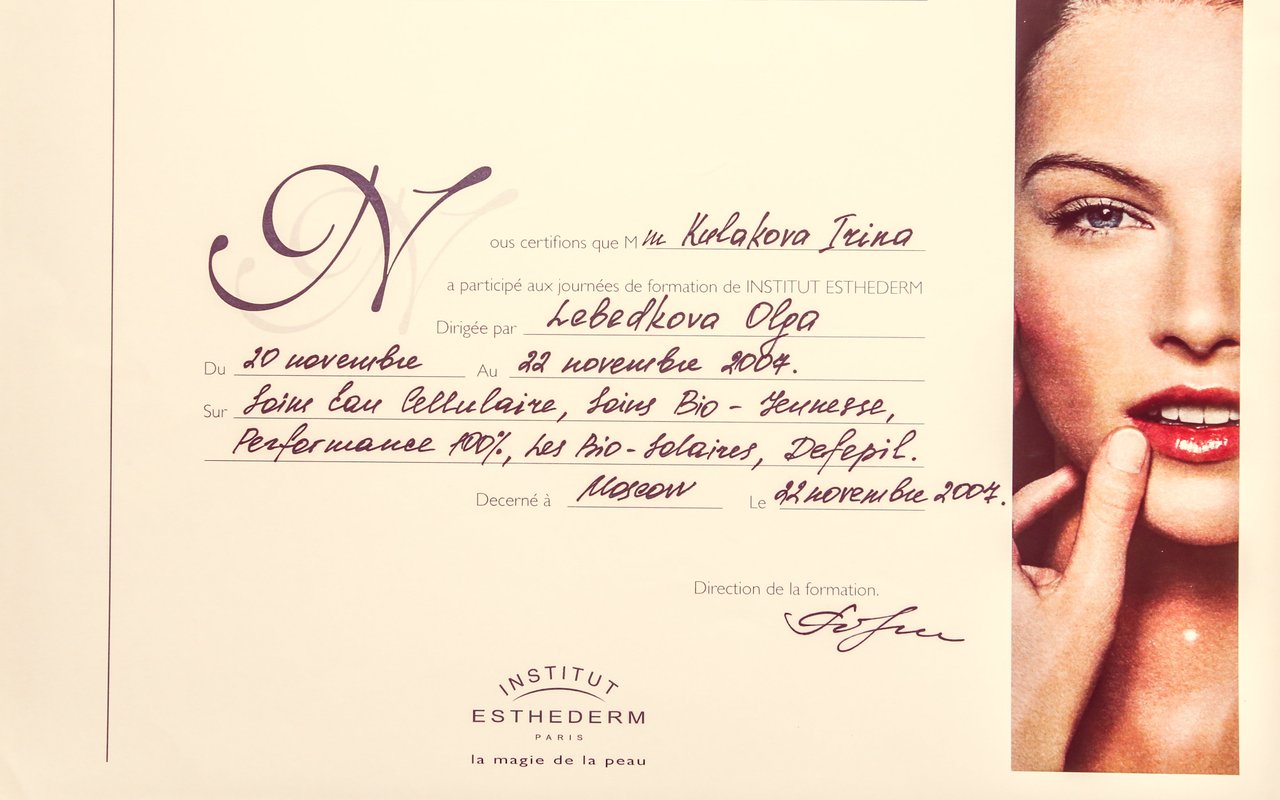 Nous certifions que Mm Kulakova Irina
a participé aux journées de formation de INSTITUT ESTHEDERM
Dirigée par Lebedkova Olga
Du 20 novembre Au 22 novembre 2007.
Sur Soins Eau Cellulaire, Soins Bio - Jeunesse,
Performance 100%, Les Bio - Solaires, Defepil.
Decerné à Moscow Le 22 novembre 2007.
Direction de la formation.
INSTITUT
ESTHEDERM
PARIS
la magie de la peau